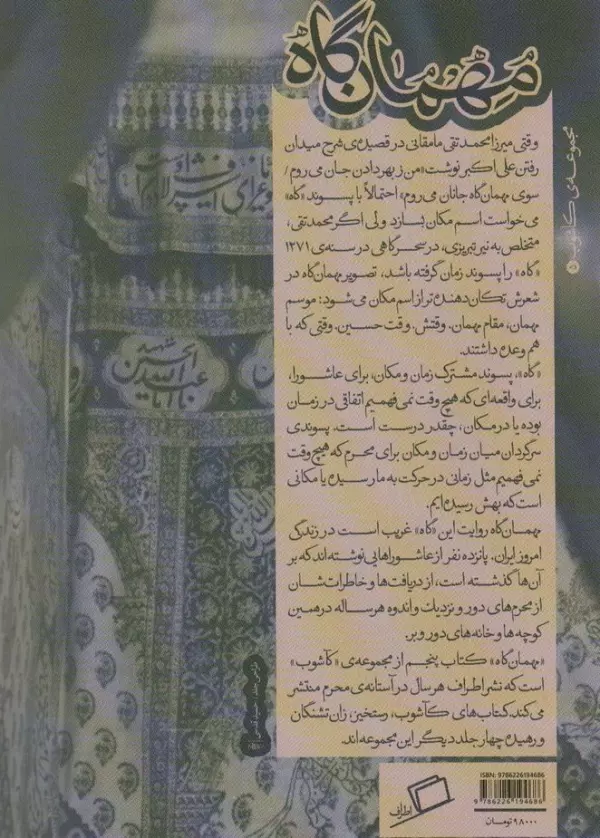 مهمان‌گاه
مجموعه‌ی کآشوب ۵
وقتی میرزا محمد تقی مامقانی در قصیده‌ی شرح میدان
رفتن علی اکبر نوشت «من ز بهر دادن جان می‌روم /
سوی مهمان‌گاه جانان می‌روم» احتمالاً با پسوند «گاه»
می‌خواست اسم مکان بسازد ولی اگر محمد تقی،
متخلص به نیر تبریزی، در سحرگاهی در سنه‌ی ۱۲۷۱
«گاه» را پسوند زمان گرفته باشد، تصویر مهمان‌گاه در
شعرش تکان‌دهنده‌تر از اسم مکان می‌شود: موسم
مهمان، مقام مهمان. وقتش. وقت حسین. وقتی که با
هم وعده داشتند.
«گاه»، پسوند مشترک زمان و مکان، برای عاشورا،
برای واقعه‌ای که هیچ وقت نمی‌فهمیم اتفاقی در زمان
بوده یا در مکان، چقدر درست است. پسوندی
سرگردان میان زمان و مکان برای محرم که هیچ وقت
نمی‌فهمیم مثل زمانی در حرکت به ما رسیده یا مکانی
است که بهش رسیده‌ایم.
مهمان‌گاه روایت این «گاه» غریب است در زندگی
امروز ایران. پانزده نفر از عاشوراهایی نوشته‌اند که بر
آن‌ها گذشته است، از دریافت‌ها و خاطرات‌شان
از محرم‌های دور و نزدیک و اندوه هرساله در همین
کوچه‌ها و خانه‌های دور و بر.
«مهمان‌گاه» کتاب پنجم از مجموعه‌ی «کآشوب»
است که نشر اطراف هر سال در آستانه‌ی محرم منتشر
می‌کند. کتاب‌های کآشوب، رستخیز، زان تشنگان
و رهیده چهار جلد دیگر این مجموعه‌اند.
شهید
اباعبدالله الحسین
طراحی جلد: حمید قدسی
اطراف
ISBN: 9786226194686
9 786226 194686
۹۸۰۰۰ تومان